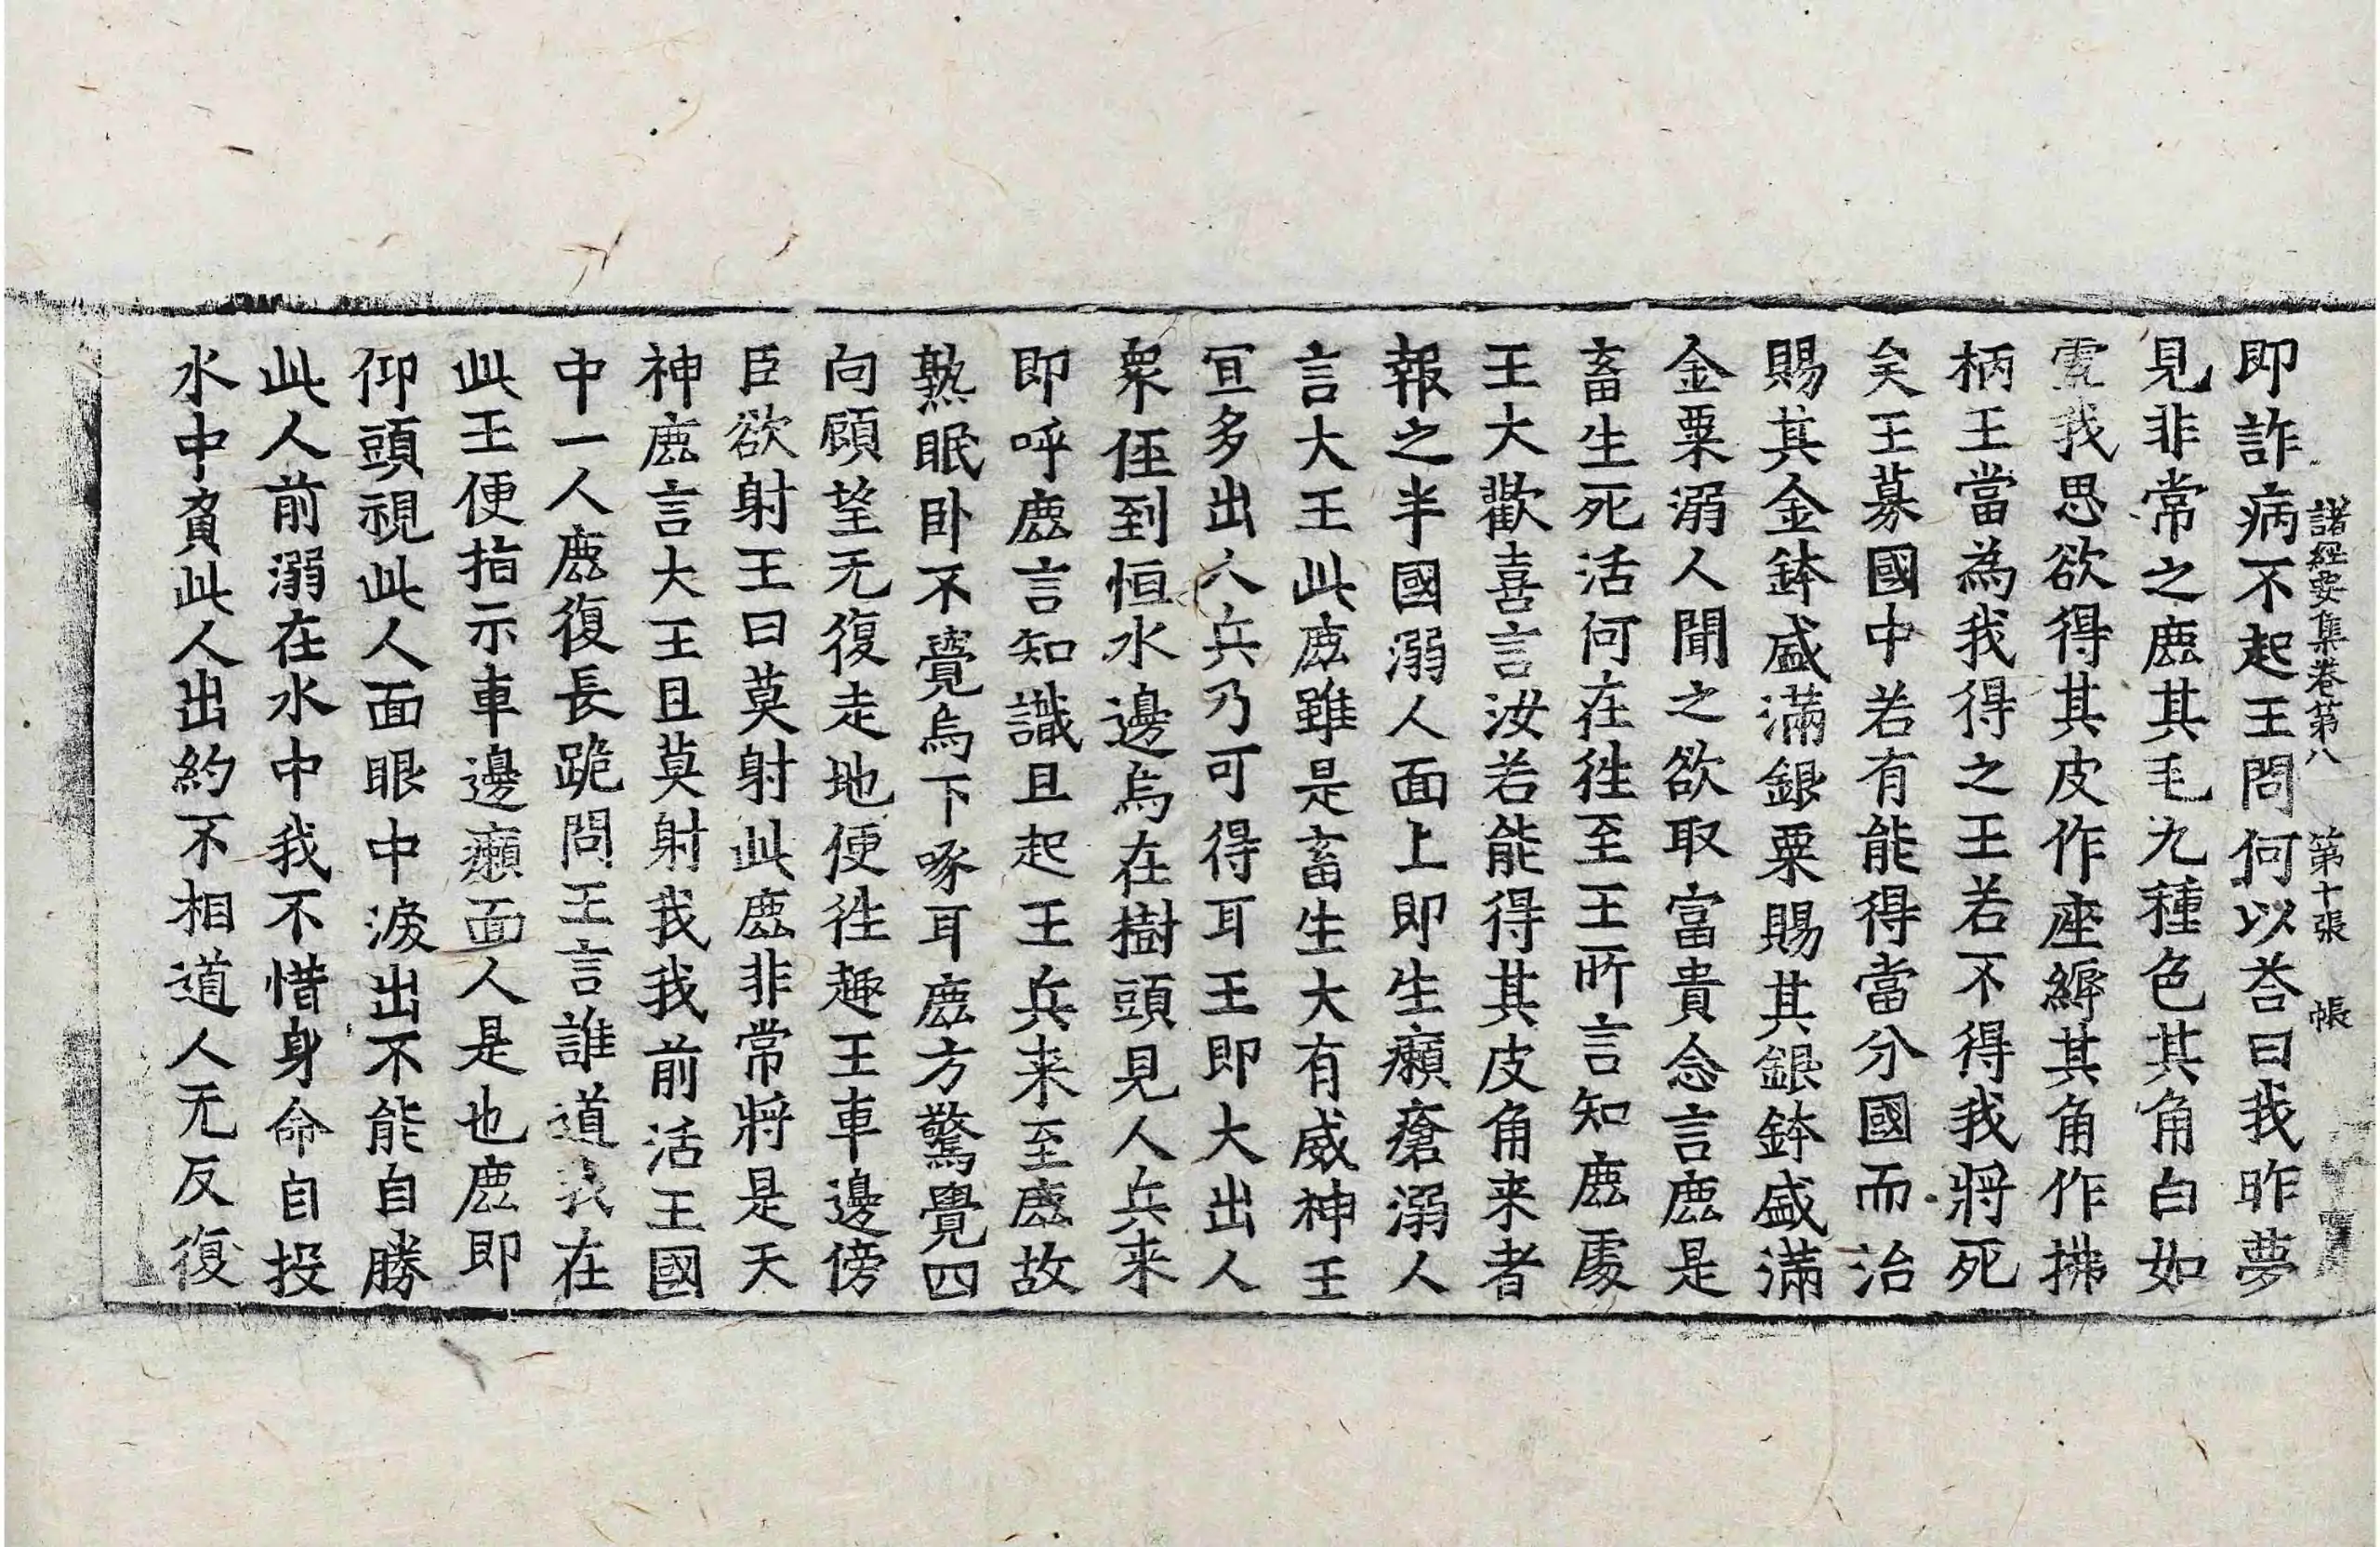 諸經要集卷第八 第十張 帳
即詐病不起王問何以荅曰我昨夢
見非常之鹿其毛九種色其角白如
雪我思欲得其皮作座縟其角作拂
柄王當為我得之王若不得我將死
矣王募國中若有能得當分國而治
賜其金鉢盛滿銀粟賜其銀鉢盛滿
金粟溺人聞之欲取富貴念言鹿是
畜生死活何在往至王所言知鹿處
王大歡喜言汝若能得其皮角来者
報之半國溺人面上即生癩瘡溺人
言大王此鹿雖是畜生大有威神王
宜多出人兵乃可得耳王即大出人
衆俓到恒水邊烏在樹頭見人兵来
即呼鹿言知識且起王兵来至鹿故
熟眠卧不覺烏下啄耳鹿方驚覺四
向顧望无復走地便往趣王車邊傍
臣欲射王曰莫射此鹿非常將是天
神鹿言大王且莫射我我前活王國
中一人鹿復長跪問王言誰道我在
此王便指示車邊癩面人是也鹿即
仰頭視此人面眼中淚出不能自勝
此人前溺在水中我不惜身命自投
水中負此人出約不相道人无反復